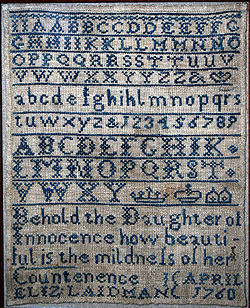 AABBCCDDEEFFG
GHHIIKKLLMMNNO
OPPQQRRSSTTUUV
VWWXXYYZZ&
abcdefghiklmnopqrs
tuwxyz&123456789
ABCDEFGHIK
LMNOPQRST
VWXY
Behold the Daughter of
Innocence how beauti
ful is the mildness of her
Countenence
APRIL
ELIZ LAIDMAN 1760